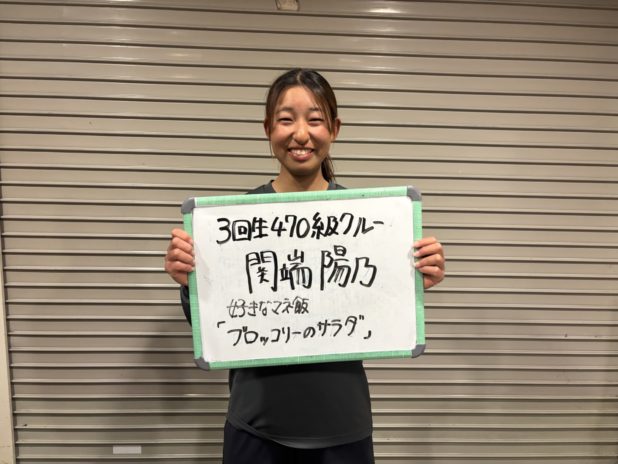 3回生470級クルー
関端 陽乃
好きなマネ飯
「ブロッコリーのサラダ」